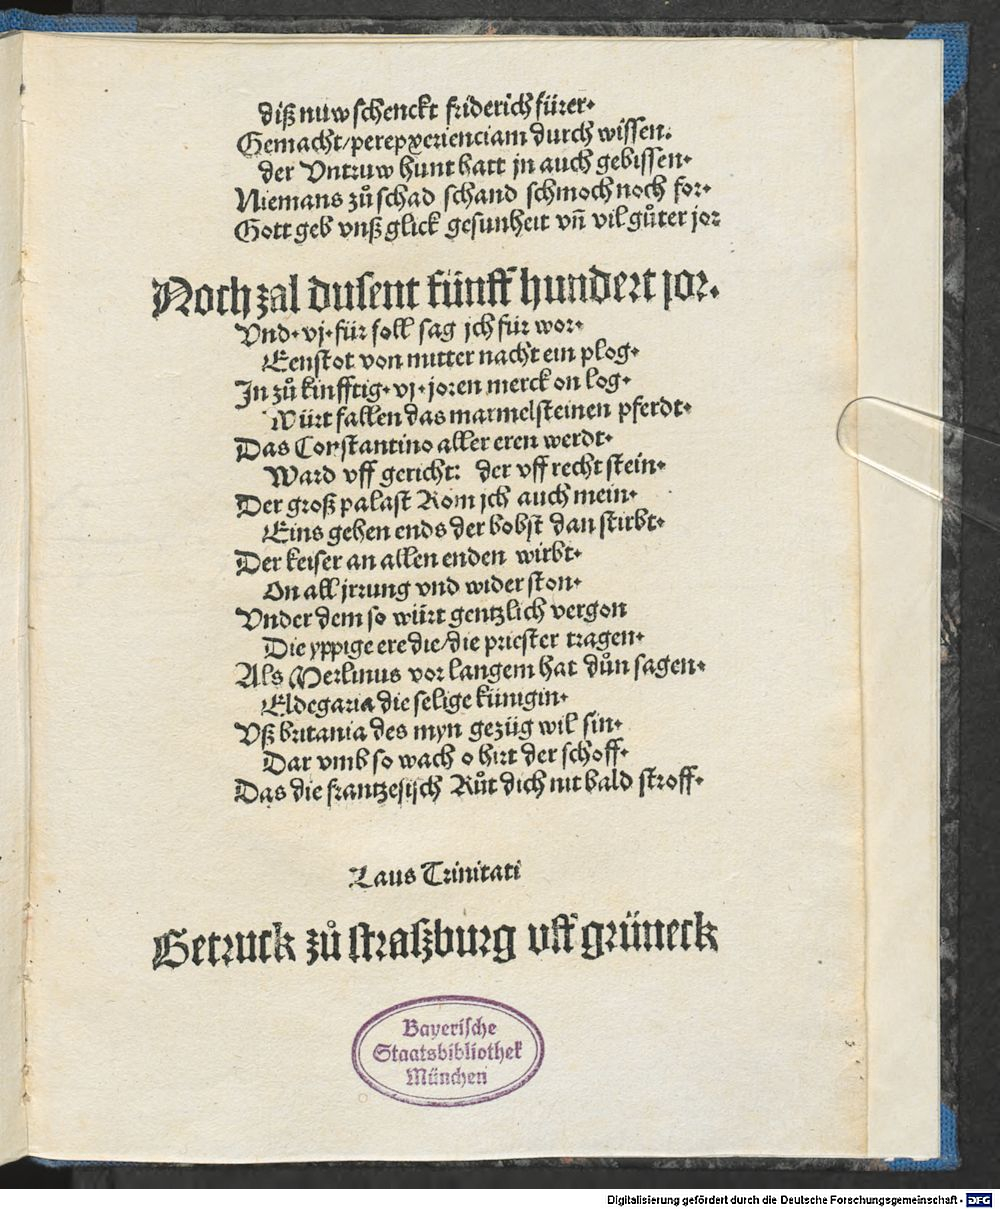 diß nuw schenckt friderich fürer·
Gemacht/per experienciam durch wissen.
der Vntruw hunt hatt jn auch gebissen·
Niemans zů schad schand schmoch noch for·
Gott geb vnß glick gesunheit vñ vil gůter jor
Noch zal dusent fünff hundert jor.
Vnd·vj·für soll sag jch für wor·
Eenstot von mitter nacht ein plog·
In zů kinfftig·vj·joren merck on log·
Würt fallen das marmelsteinen pferdt·
Das Constantino aller eren werdt·
Ward vff gericht: der vff recht stein·
Der groß palast Rom jch auch mein·
Eins gehen ends der bobst dan stirbt·
Der keiser an allen enden wirbt·
On all jrrung vnd wider ston·
Vnder dem so würt gentzlich vergon
Die yppige ere die/die priester tragen·
Als Merlinus vor langem hat důn sagen·
Eldegaria die selige künigin·
Vß britania des myn gezüg wil sin·
Dar vmb so wach o hirt der schoff·
Das die frantzesisch Růt dich nit bald stroff·
Laus Trinitati
Getruck zů straßburg vff grüneck
Bayerische
Staatsbibliothek
München
Digitalisierung gefördert durch die Deutsche Forschungsgemeinschaft - DFG